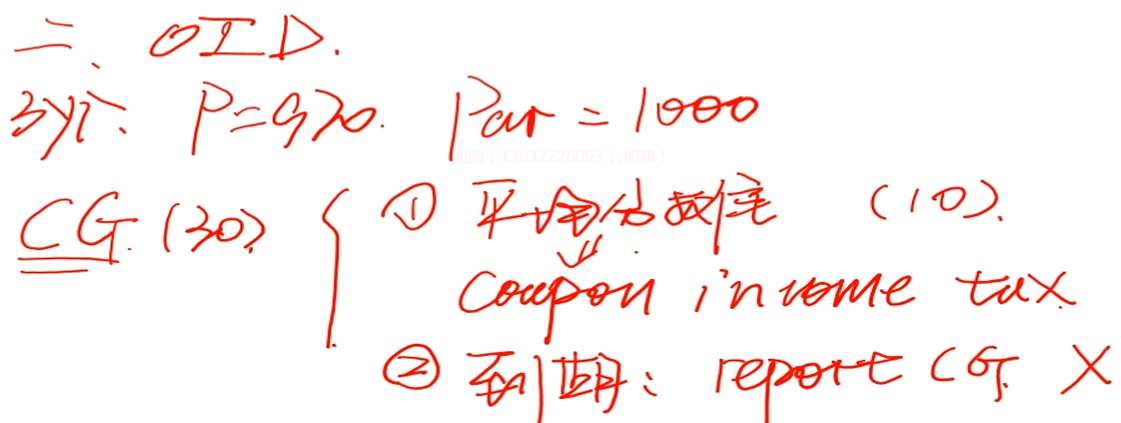 二、OID.
3yr. P=970. Par=1000
CG.(30) ① 平均分摊 (10).
coupon income tax.
② 到期: report CG X